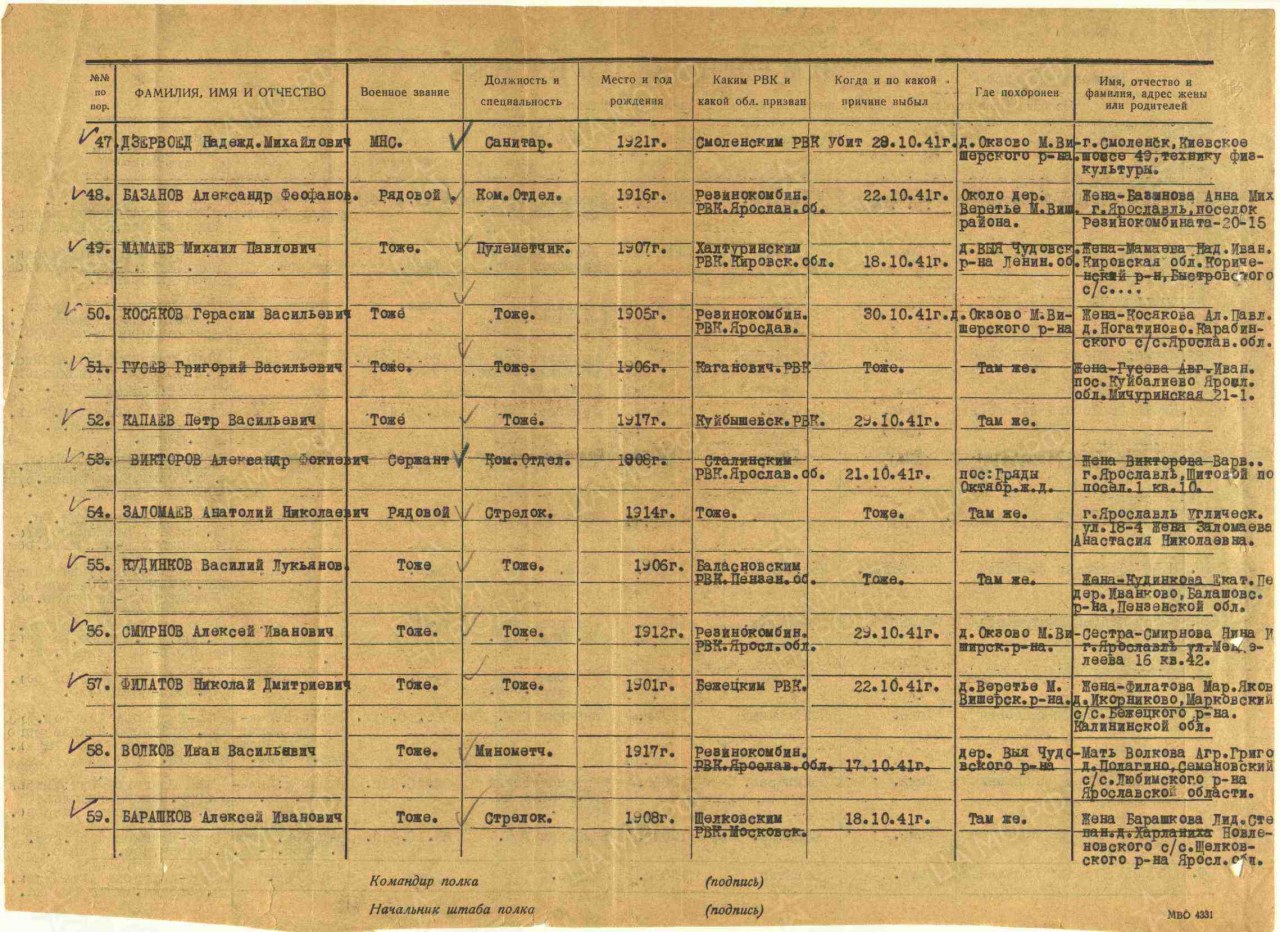 №№ по пор. ФАМИЛИЯ, ИМЯ И ОТЧЕСТВО Военное звание Должность и специальность Место и год рождения Каким РВК и какой обл. призван Когда и по какой причине выбыл Где похоронен Имя, отчество и фамилия, адрес жены или родителей
47. ДЗЕРВОЕД Надежд.Михайлович МНС. Санитар. 1921г. Смоленским РВК Убит 29.10.41г. д.Оквово М.Ви- г.Смоленск,Киевское
шерского р-на. шоссе 49,технику физ-
культуры.
48. БАЗАНОВ Александр Феофанов. Рядовой Ком.Отдел. 1916г. Резинокомбин. 22.10.41г. Около дер. Жена-Базанова Анна Мих
РВК.Ярослав.об. Веретье М.Виш. г.Ярославль,поселок
района. Резинокомбината-20-15
49. МАМАЕВ Михаил Павлович Тоже. Пулеметчик. 1907г. Халтуринским д.ВЫЯ Чудовск. Жена-Мамаева Над.Иван.
РВК.Кировск.обл. 18.10.41г. р-на Ленин.об. Кировская обл.Кориче-
нский р-н,Быстровского
с/с....
50. КОСЯКОВ Герасим Васильевич Тоже Тоже. 1905г. Резинокомбин. 30.10.41г. д.Оквово М.Ви- Жена-Косякова Ал.Павл.
РВК.Яросдав. шерского р-на д.Ногатиново.Карабин-
ского с/с.Ярослав.обл.
51. ГУСЕВ Григорий Васильевич Тоже. Тоже. 1906г. Каганович.РВК Тоже. Там же. Жена-Гусева Авг.Иван.
пос.Куйбалиево Яросл.
обл.Мичуринская 21-1.
52. КАПАЕВ Петр Васильевич Тоже Тоже. 1917г. Куйбышевск.РВК. 29.10.41г. Там же.
53. ВИКТОРОВ Александр Фокиевич Сержант Ком.Отдел. 1908г. Сталинским Жена Викторова Варв..
РВК.Ярослав.об. 21.10.41г. пос:Гряды г.Ярославль,Щитовой по
Октябр.ж.д. посел.1 кв.10.
54. ЗАЛОМАЕВ Анатолий Николаевич Рядовой Стрелок. 1914г. Тоже. Тоже. Там же. г.Ярославль Углическ.
ул.18-4 Жена Заломаева
Анастасия Николаевна.
55. КУДИНКОВ Василий Лукьянов. Тоже Тоже. 1906г. Баласновским
РВК.Пензен.об. Тоже. Там же. Жена-Кудинкова Екат.Пе
дер.Иванково,Балашовс.
р-на,Пензенской обл.
56. СМИРНОВ Алексей Иванович Тоже. Тоже. 1912г. Резинокомбин. 29.10.41г. д. Оквово М.Ви- Сестра-Смирнова Нина И
РВК.Яросл.обл. ширск.р-на. г.Ярославль ул.Мен е-
леева 16 кв.42.
57. ФИЛАТОВ Николай Дмитриевич Тоже. Тоже. 1901г. Бежецким РВК. 22.10.41г. д.Веретье М. Жена-Филатова Мар.Яков
Вишерск.р-на. д.Икорниково,Марковский
с/с.Бежецкого р-на.
Калининской обл.
58. ВОЛКОВ Иван Васильевич Тоже. Минометч. 1917г. Резинокомбин. дер. Выя Чудо- Мать Волкова Агр.Григо
РВК.Ярослав.обл. 17.10.41г. вского р-на д.Полагино,Семеновский
с/с.Любимского р-на
Ярославской области.
59. БАРАШКОВ Алексей Иванович Тоже. Стрелок. 1908г. Щелковским 18.10.41г. Там же. Жена Барашкова Лид.Сте
РВК.Московск. пан.д.Харланиха Новле-
новского с/с.Щелков-
ского р-на Яросл.обл.
Командир полка (подпись)
Начальник штаба полка (подпись)
МВО 4331